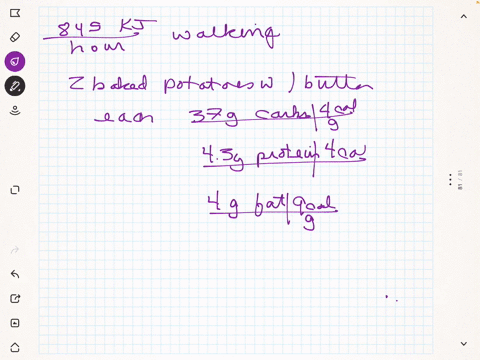 845 KJ walking
hour
2 baked potatoes w/ butter
each 37g carbs | 4 cal
g
4.5g protein | 4 cal
4 g fat | 9 cal
g